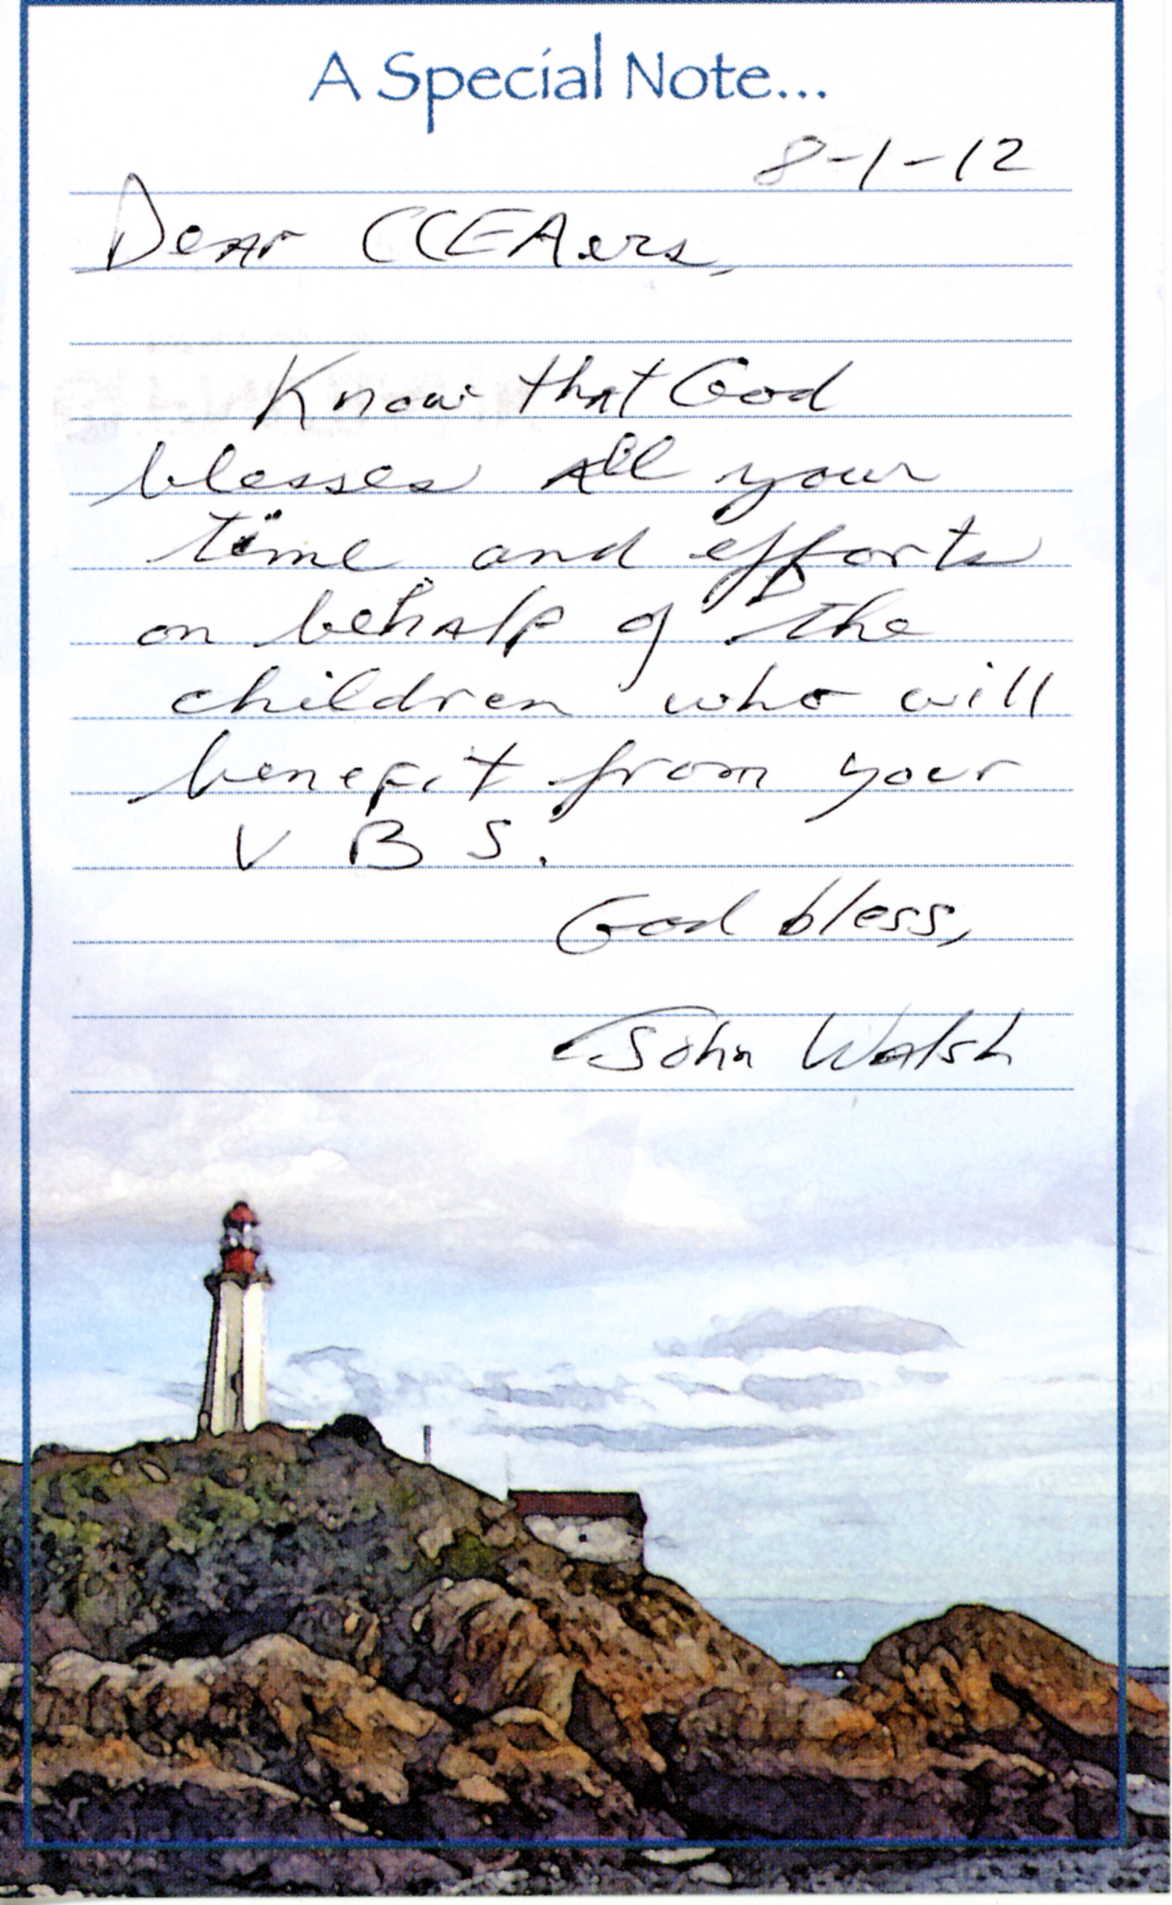 A Special Note...
8-1-12
Dear CCEAers,
Know that God
blesses all your
time and efforts
on behalf of the
children who will
benefit from your
V B S.
God bless,
John Walsh